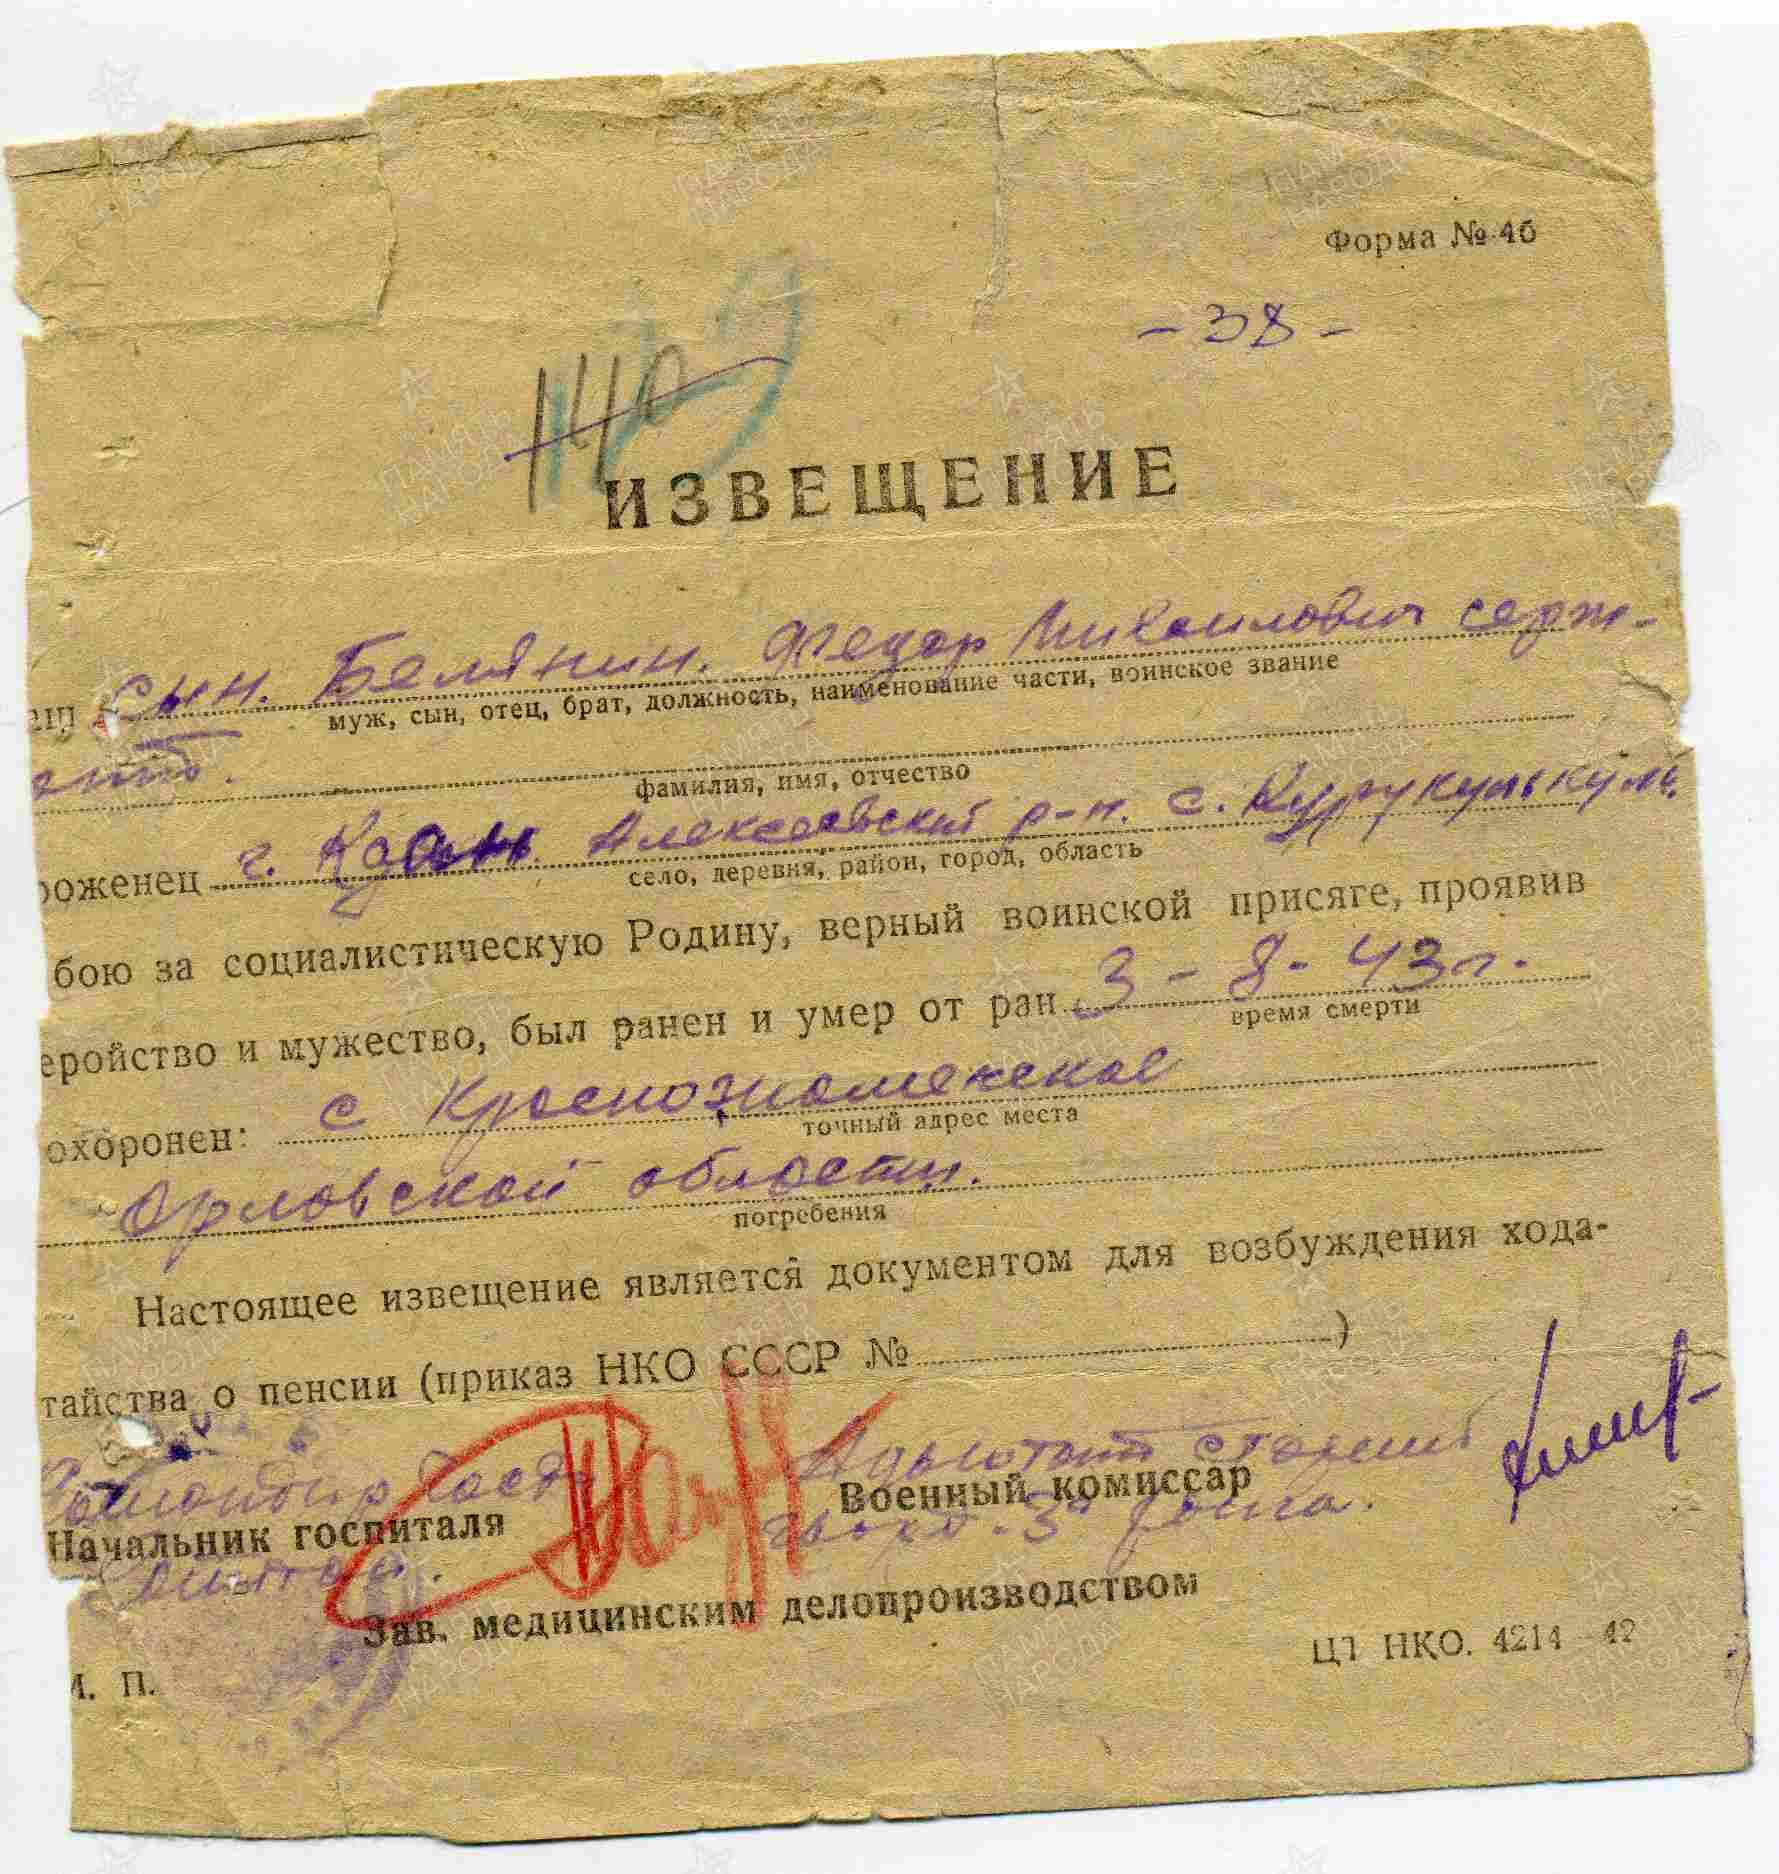 Форма № 4б
- 38 -
ИЗВЕЩЕНИЕ
аш сын. Белянин. Федор Михаилович серж-
муж, сын, отец, брат, должность, наименование части, воинское звание
ант.
фамилия, имя, отчество
роженец г. Казань Алексеевский р-н. с. Курукулькуль.
село, деревня, район, город, область
бою за социалистическую Родину, верный воинской присяге, проявив
еройство и мужество, был ранен и умер от ран 3 - 8 - 43 г.
время смерти
охоронен: с Краснознаменское
точный адрес места
Орловской области.
погребения
Настоящее извещение является документом для возбуждения хода-
тайства о пенсии (приказ НКО СССР № )
Командир части Адьютант старший
Начальник госпиталя Военный комиссар
Зав. медицинским делопроизводством
М. П.
ЦТ НКО. 4214—42